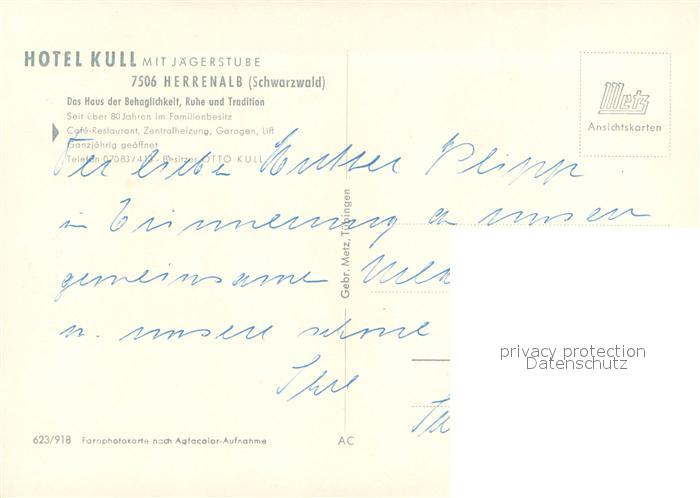 HOTEL KULL MIT JÄGERSTUBE
7506 HERRENALB (Schwarzwald)
Das Haus der Behaglichkeit, Ruhe und Tradition
Seit über 80 Jahren im Familienbesitz
Café-Restaurant, Zentralheizung, Garagen, Lift
Ganzjährig geöffnet
Telefon 07083/412 - Besitzer OTTO KULL
Metz
Ansichtskarten
Der lieben Mutter
in Erinnerung an unsern
gemeinsame
u. unsere schöne
Ihre
Gebr. Metz, Tübingen
privacy protection
Datenschutz
623/918 Farbphotokarte nach Agfacolor-Aufnahme
AC